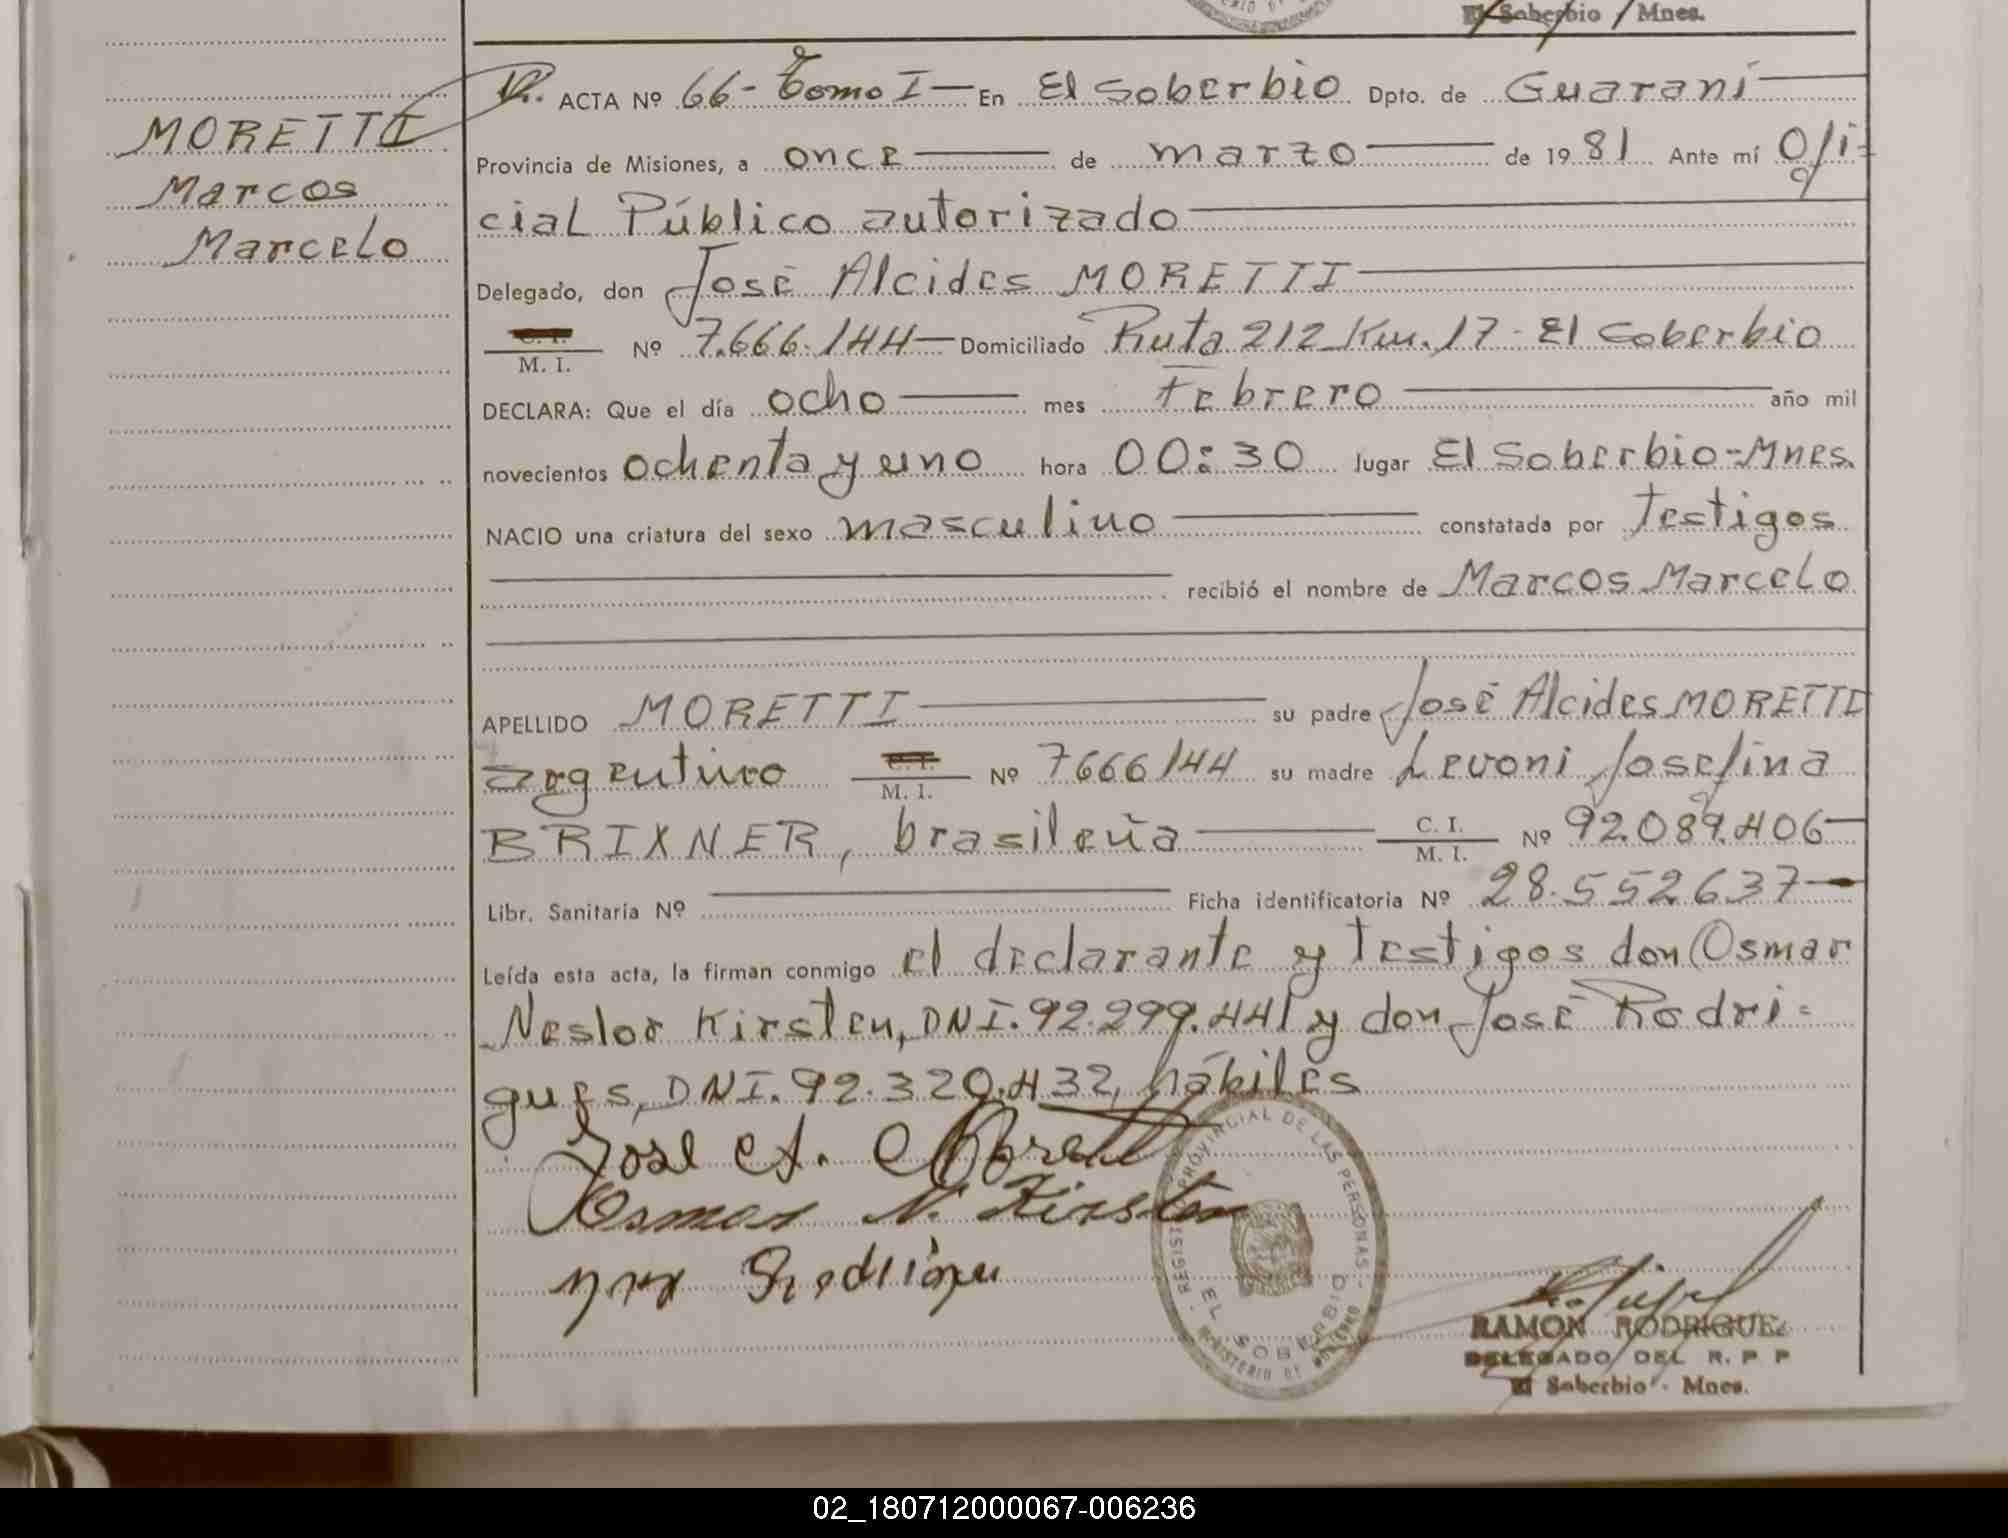 El Soberbio / Mnes.
ACTA Nº 66 - Tomo I — En El Soberbio Dpto. de Guaraní
MORETTI
Marcos
Marcelo
Provincia de Misiones, a once de marzo de 1981 Ante mí Ofi=
cial Público autorizado
Delegado, don José Alcides MORETTI
C. I.
M. I. Nº 7.666.144 — Domiciliado Ruta 212 Km. 17 - El Soberbio
DECLARA: Que el día ocho mes Febrero año mil
novecientos ochenta y uno hora 00:30 lugar El Soberbio - Mnes.
NACIO una criatura del sexo masculino constatada por testigos
recibió el nombre de Marcos Marcelo
APELLIDO MORETTI su padre José Alcides MORETTI
argentino C. I. M. I. Nº 7666144 su madre Levoni Josefina
BRIXNER, brasileña C. I. M. I. Nº 92.089.406 —
Libr. Sanitaria Nº Ficha identificatoria Nº 28.552637 —
Leída esta acta, la firman conmigo el declarante y testigos don Osmar
Neslor Kirsten, DNI. 92.299.441 y don José Rodri=
gues, DNI. 92.320.432, hábiles
José A. Moretti
Osmar N. Kirsten
Rodrigues
REGISTRO PROVINCIAL DE LAS PERSONAS
EL SOBERBIO
MINISTERIO DE GOBIERNO
RAMON RODRIGUEZ
DELEGADO DEL R. P P
El Soberbio - Mnes.
02_180712000067-006236